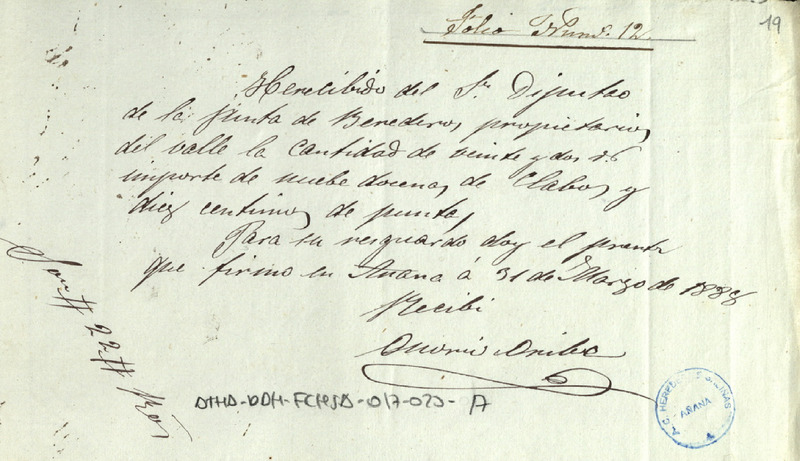 19
Folio Núm. 12
He recibido del Sr Diputao
de la Junta de Herederos, propietarios
del valle la Cantidad de veinte y dos rs
importe de nuebe docenas de Clabos y
diez centimos de puntas
Para su resguardo doy el presente
que firmo en Añana á 31 de Marzo de 1888
Recibi
Son # 22 # Rs
ATHA-DAH-FCHSA-017-020-A
A. C. HEREDEROS SALINAS
AÑANA